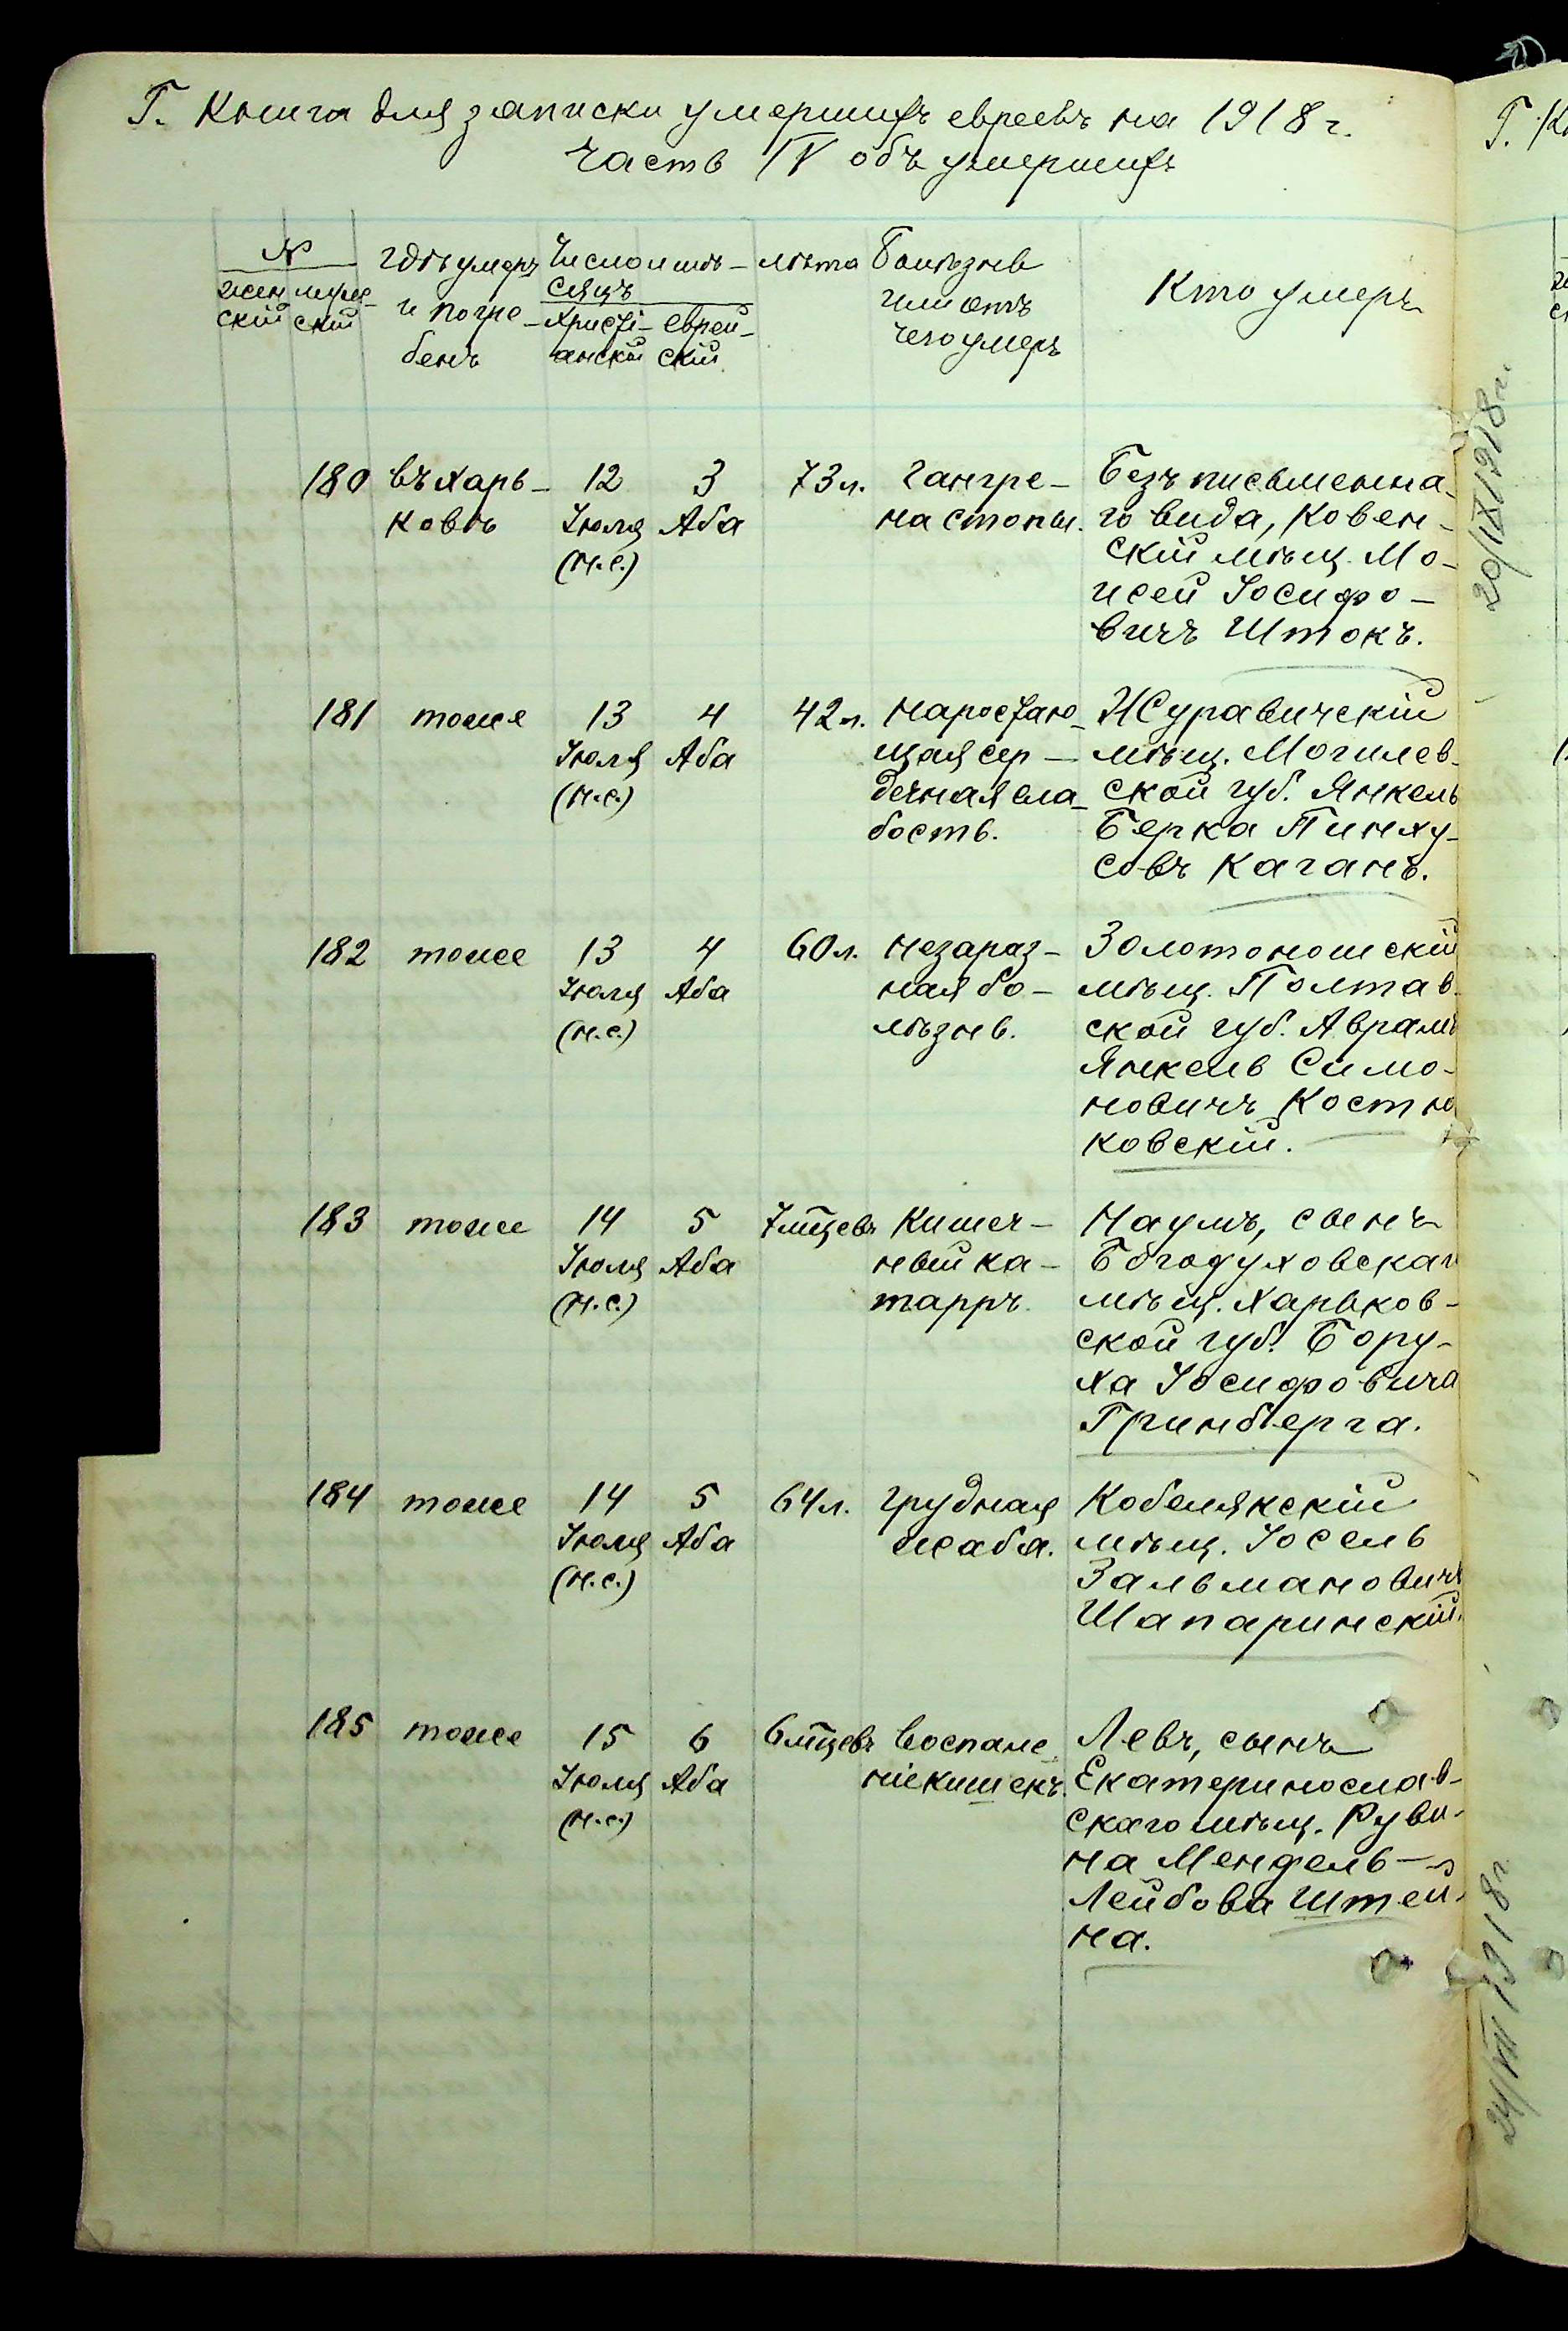 Г. Книга для записки умершихъ евреевъ на 1918 г.
Часть IV объ умершихъ
№
женскій
мужескій
Гдѣ умеръ
и погре-
бенъ
Число и мѣ-
сяцъ
Христі-
анскій
Еврей-
скій
лѣта
Болѣзнь
или отъ
чего умеръ
Кто умеръ
180 въ Харь-
ковѣ
12
Іюля
(н.с.)
3
Аба
73 л.
Гангре-
на стопы.
Безъ письменна-
го вида, Ковен-
скій мѣщ. Мо-
исей Іосифо-
вичъ Штокъ.
181 тоже
13
Іюля
(н.с.)
4
Аба
42 л.
Наростаю-
щая сер-
дечная сла-
бость.
Журавичскій
мѣщ. Могилев-
ской губ. Янкель
Берка Пинху-
совъ Каганъ.
182 тоже
13
Іюля
(н.с.)
4
Аба
60 л.
Незараз-
ная бо-
лѣзнь.
Золотоношскій
мѣщ. Полтав-
ской губ. Аврамъ
Янкель Симо-
новичъ Костю
ковскій.
183 тоже
14
Іюля
(н.с.)
5
Аба
7 мцевъ
Кишеч-
ный ка-
тарръ.
Наумъ, сынъ
Богодуховскаг
мѣщ. Харьков-
ской губ. Бору-
ха Іосифовича
Гринберга.
184 тоже
14
Іюля
(н.с.)
5
Аба
64 л.
Грудная
жаба.
Кобелякскій
мѣщ. Іосель
Зальмановичъ
Шапаринскій.
185 тоже
15
Іюля
(н.с.)
6
Аба
6 мцевъ
Воспале-
ніе кишекъ.
Левъ, сынъ
Екатеринослав-
скаго мѣщ. Руви-
на Мендель-
Лейбова Штей-
на.
20/IX 1918 г.
24/VII 1918 г.
Г. Кн